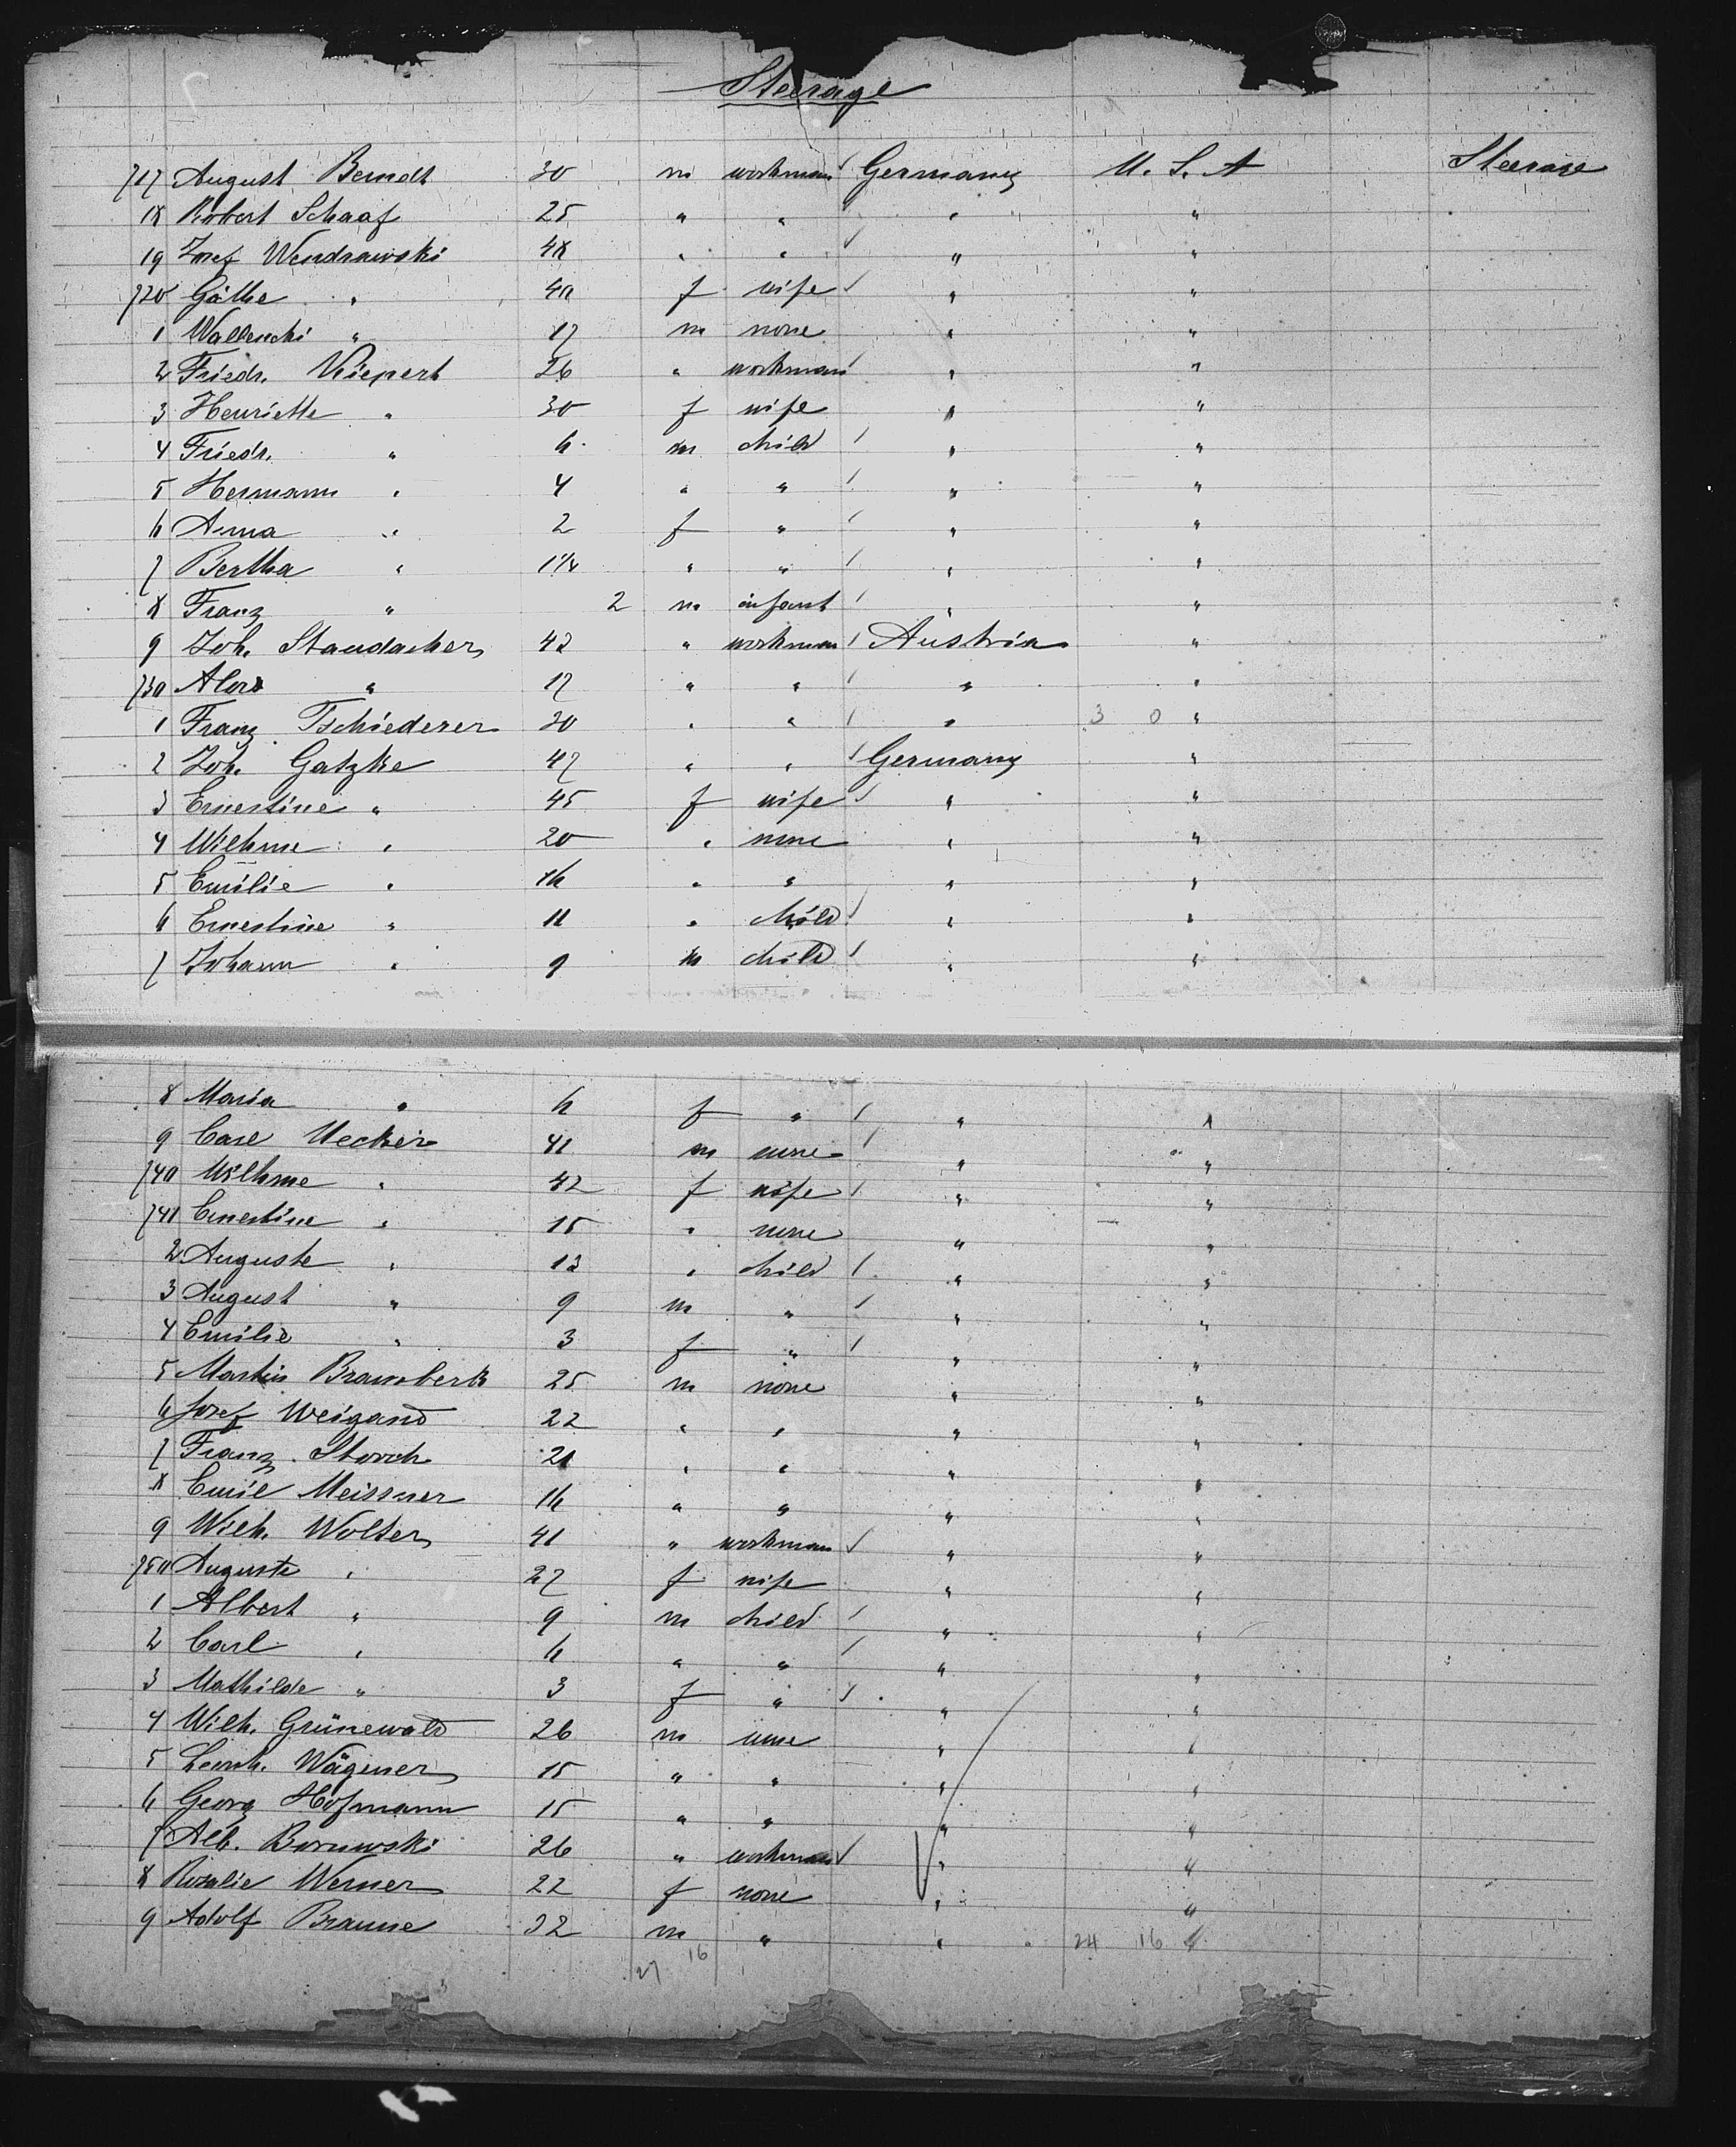 Steerage
717 August Berndt 30 m workman Germany U. S. A Steerage
18 Robert Schaaf 25 " " " "
19 Josef Wendrawski 48 " " " "
720 Gäthe " 40 f wife " "
1 " 17 m none " "
2 Friedr. Kiepert 26 " workman " "
3 Henriette " 30 f wife " "
4 Friedr. " 6 m child " "
5 Hermann " 4 " " " "
6 Anna " 2 f " " "
7 Bertha " " " " "
8 Franz " 2 m infant " "
9 Joh. Staudacher 42 " workman Austria "
730 Alois " 17 " " " "
1 Franz Tschiederer 30 " " " 3 0 "
2 Joh. Gatzke 47 " " Germany "
3 Ernestine " 45 f wife " "
4 Wilhme " 20 " none " "
5 Emilie " 16 " " " "
6 Ernestine " 11 " child " "
7 Johann " 9 m child " "
8 Maria " 6 f " " "
9 Carl Uecker 41 m none " "
740 Wilhme " 42 f wife " "
741 Ernestine " 15 " none " "
2 Auguste " 13 " child " "
3 August " 9 m " " "
4 Emilie " 3 f " " "
5 Martin 25 m none " "
6 Josef Weigand 22 " " " "
7 Franz Storch 21 " " " "
8 Emil Meissner 16 " " " "
9 Wilh. Wolter 41 " workman " "
750 Auguste " 27 f wife " "
1 Albert " 9 m child " "
2 Carl " 6 " " " "
3 Mathilde " 3 f " " "
4 Wilh. Grünewald 26 m none " "
5 Leonh. Wägner 15 " " " "
6 Georg Hofmann 15 " " " "
7 Alb. Borunski 26 " workman " "
8 Rosalie Werner 22 f none " "
9 Adolf Braune 32 m " " 24 16 "
27 16